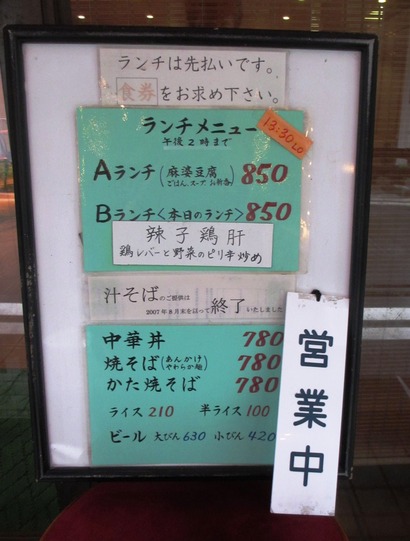 ランチは先払いです。
食券をお求め下さい。
ランチメニュー
午後2時まで
13:30LO
Aランチ(麻婆豆腐 850
ごはん、スープ、お新香)
Bランチ<本日のランチ>850
辣子鶏肝
鶏レバーと野菜のピリ辛炒め
汁そばのご提供は
2007年8月末を以って終了いたしました
中華丼 780
焼そば(あんかけ 780
やわらか麺)
かた焼そば 780
ライス 210 半ライス 100
ビール 大びん 630 小びん 420
営業中